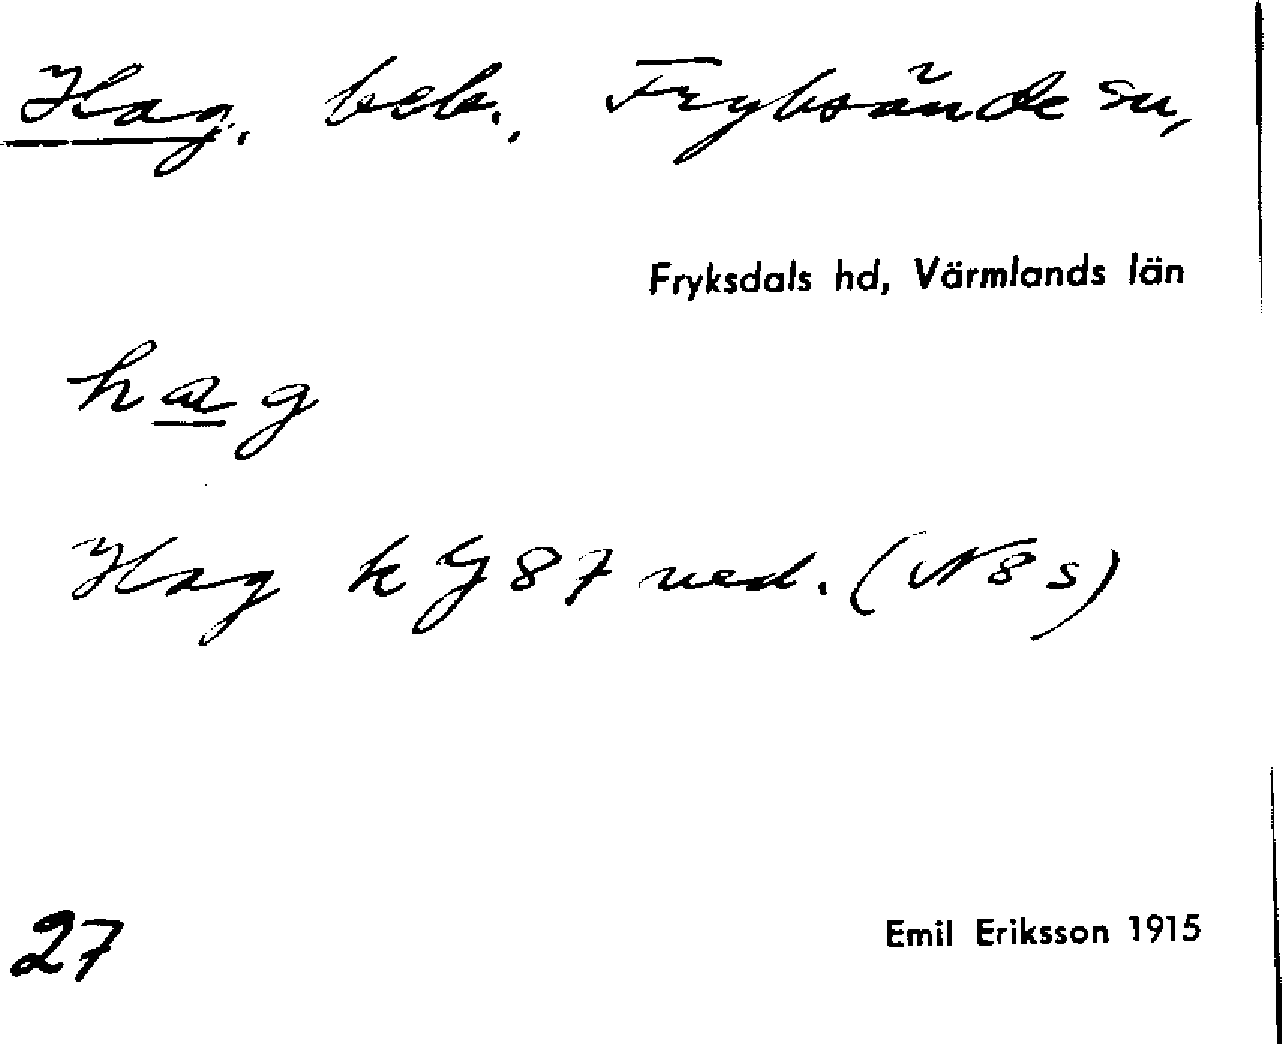 Hag, beb., Fryksände sn,
Fryksdals hd, Värmlands län
hag
Hag k G 87 ned. (N 8 s)
27 Emil Eriksson 1915